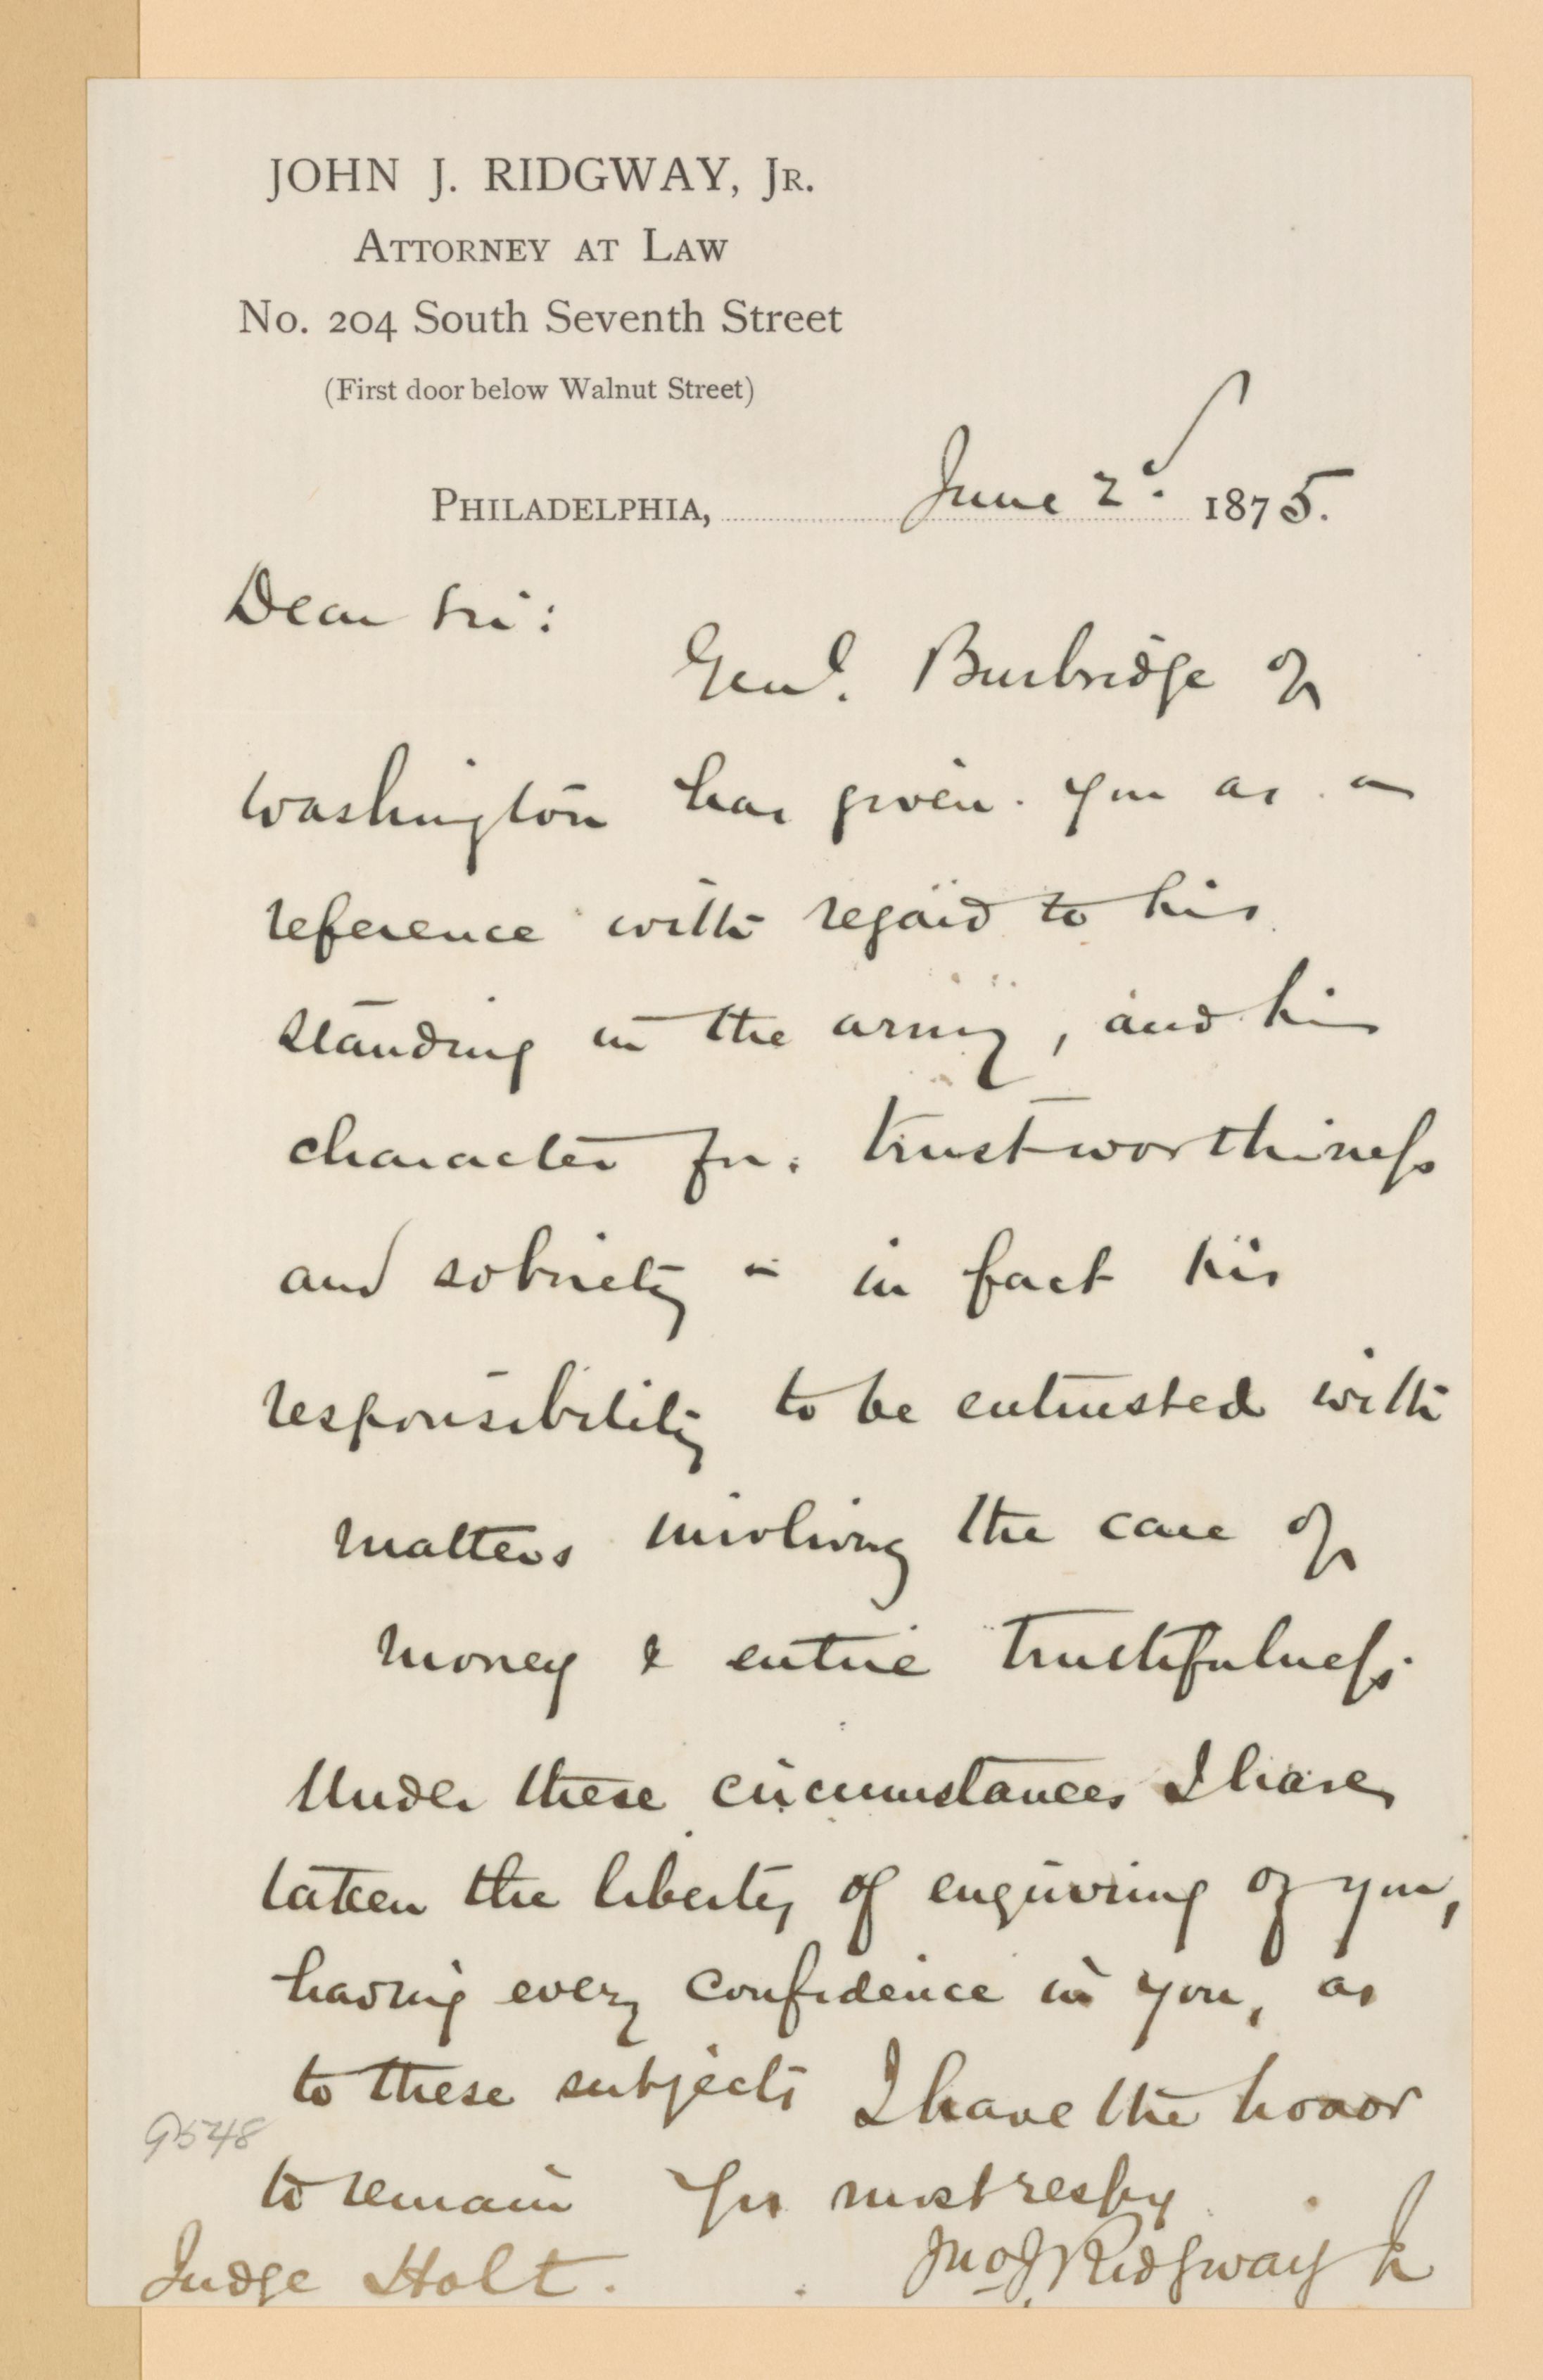 JOHN J. RIDGWAY, JR.
ATTORNEY AT LAW
No. 204 South Seventh Street
(First door below Walnut Street)
PHILADELPHIA, June 2d. 1875.
Dear Sir:
Genl. Burbridge of
Washington has given you as a
reference with regard to his
standing in the army, and his
character for trustworthiness
and sobriety - in fact his
responsibility to be entrusted with
matters involving the care of
money & entire truthfulness.
Under these circumstances I have
taken the liberty of enquiring of you,
having every confidence in you, as
to these subjects I have the honor
to remain Yrs most respy
Jno J Ridgway Jr
Judge Holt.
9548